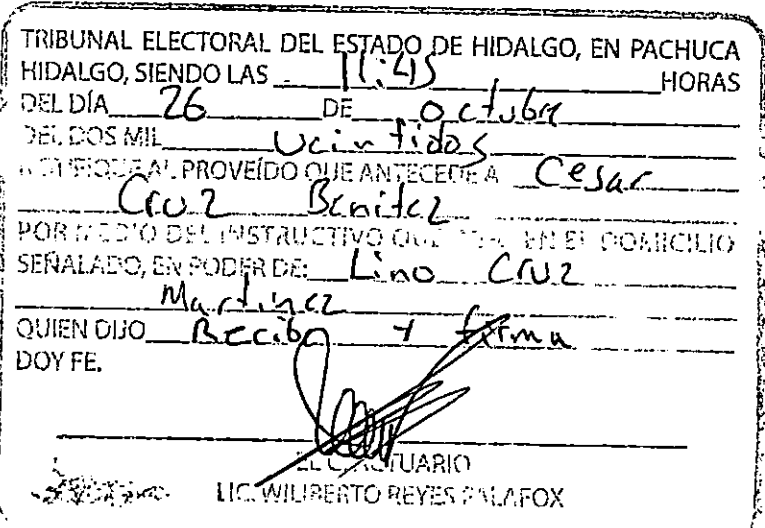 TRIBUNAL ELECTORAL DEL ESTADO DE HIDALGO, EN PACHUCA
HIDALGO, SIENDO LAS 11:45 HORAS
DEL DÍA 26 DE octubre
DEL DOS MIL Veintidos
NOTIFIQUE AL PROVEÍDO QUE ANTECEDE A Cesar
Cruz Benitez
POR MEDIO DEL INSTRUCTIVO QUE EN EL DOMICILIO
SEÑALADO, EN PODER DE: Lino Cruz
Martinez
QUIEN DIJO Recibo y firma
DOY FE.
EL C. ACTUARIO
LIC. WILIBERTO REYES PALAFOX